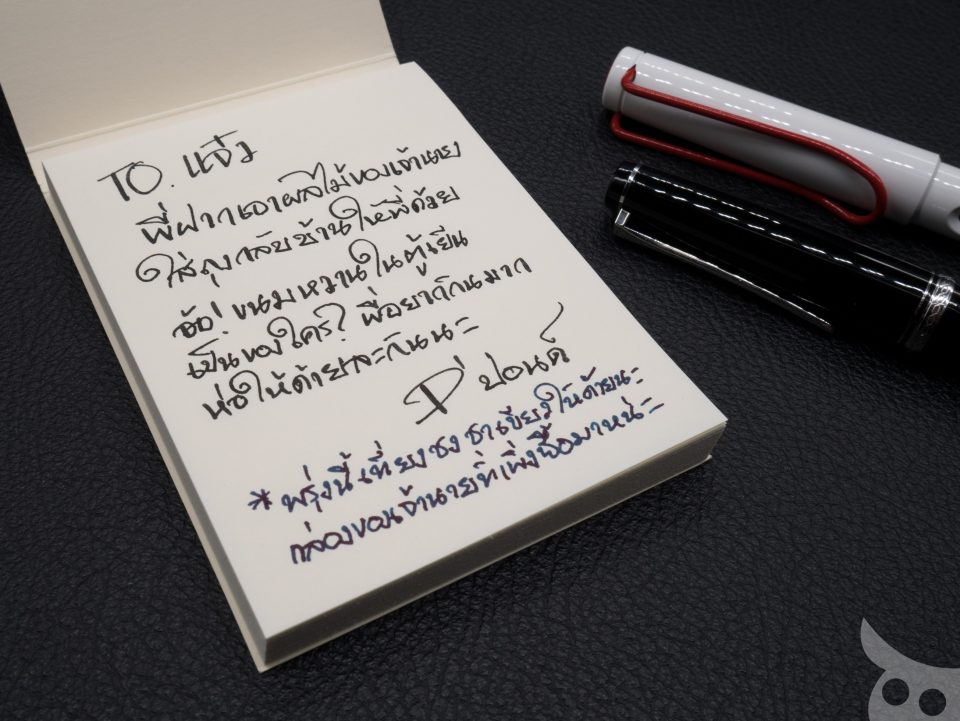 TO. แจ๋ว
พี่ฝากเอาผลไม้ของเจ้านาย
ใส่ถุงกลับบ้านให้พี่ด้วย
อ้อ! ขนมหวานในตู้เย็น
เป็นของใคร? พี่อยากกินมาก
ห่อให้ด้วยละกันนะ
P' ปอนด์
* พรุ่งนี้เที่ยงชงชาเขียวให้ด้วยนะ
กล่องของเจ้านายที่เพิ่งซื้อมาหน่ะ